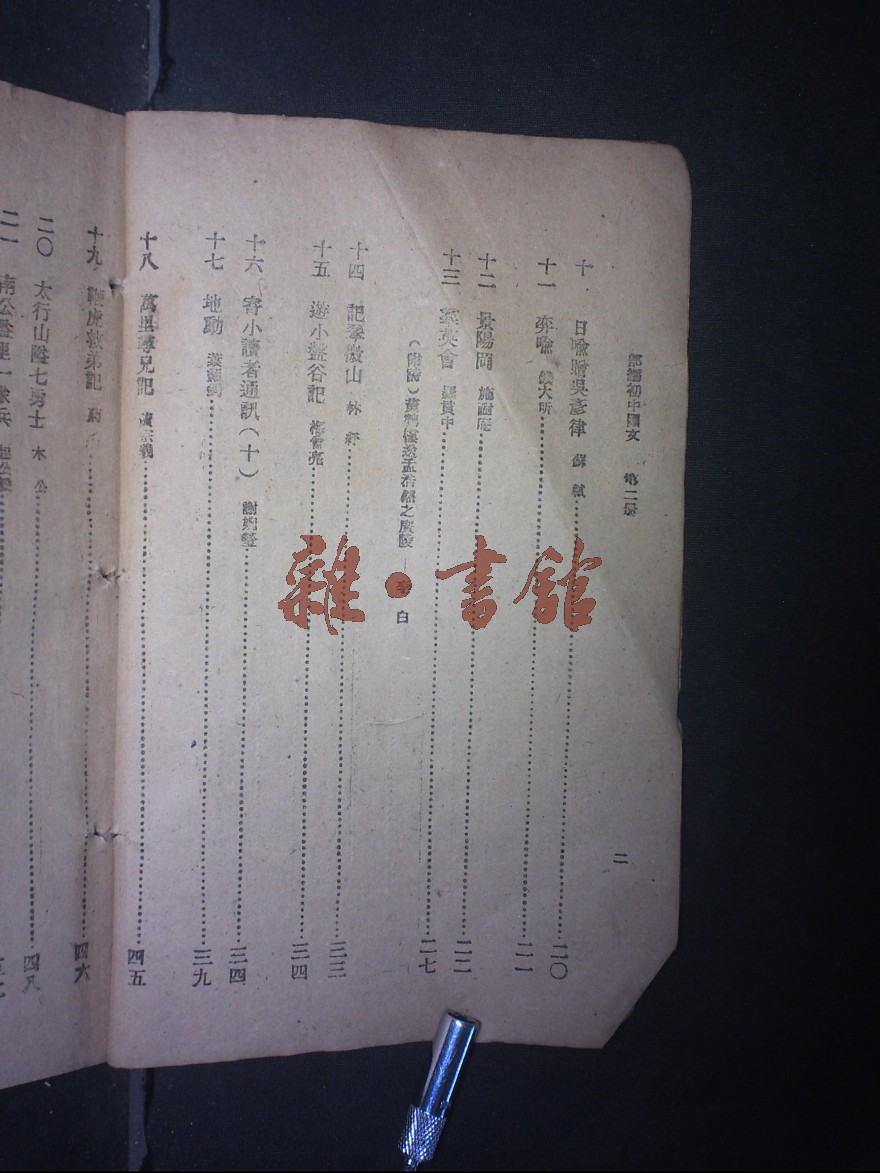 部編初中國文 第二册
二
十 日喻贈吳彥律 蘇軾 二〇
十一 弈喻 錢大昕 二一
十二 景陽岡 施耐庵 二二
十三 羣英會 羅貫中 二七
(附詩)黃鶴樓送孟浩然之廣陵 李白
十四 記翠微山 林紓 三三
十五 遊小盤谷記 梅曾亮 三四
十六 寄小讀者通訊(十) 謝婉瑩 三四
十七 地動 蔡 三九
十八 萬里尋兄記 黃宗羲 四五
十九 虎救弟記 四六
二〇 太行山隘七勇士 木公 四八
二一 南公 一
雜·書館